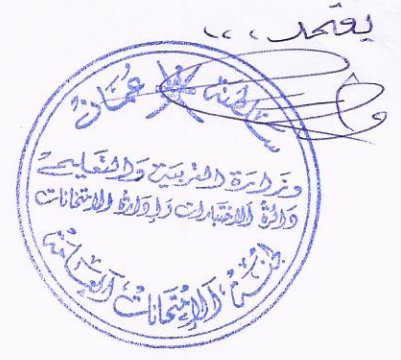 يعتمد...
سلطنة عمان
وزارة التربية والتعليم
دائرة الاختبارات وإدارة الامتحانات
الامتحانات العامة